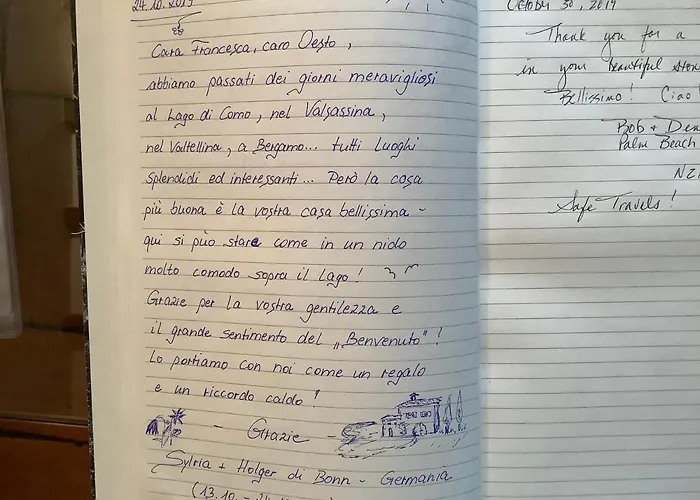 24.10.2019
Cara Francesca, caro Oesto,
abbiamo passati dei giorni meravigliosi
al Lago di Como, nel Valsassina,
nel Valtellina, a Bergamo... tutti Luoghi
splendidi ed interessanti... Però la cosa
più buona è la vostra casa bellissima -
qui si può stare come in un nido
molto comodo sopra il Lago!
Grazie per la vostra gentilezza e
il grande sentimento del „Benvenuto"!
Lo portiamo con noi come un regalo
e un riccordo caldo!
- Grazie -
Sylvia + Holger di Bonn - Germania
(13.10. - 24.10.
October 30, 2019
Thank you for a
in your beautiful
Bellissimo! Ciao!
Bob +
Palm Beach
Safe Travels!